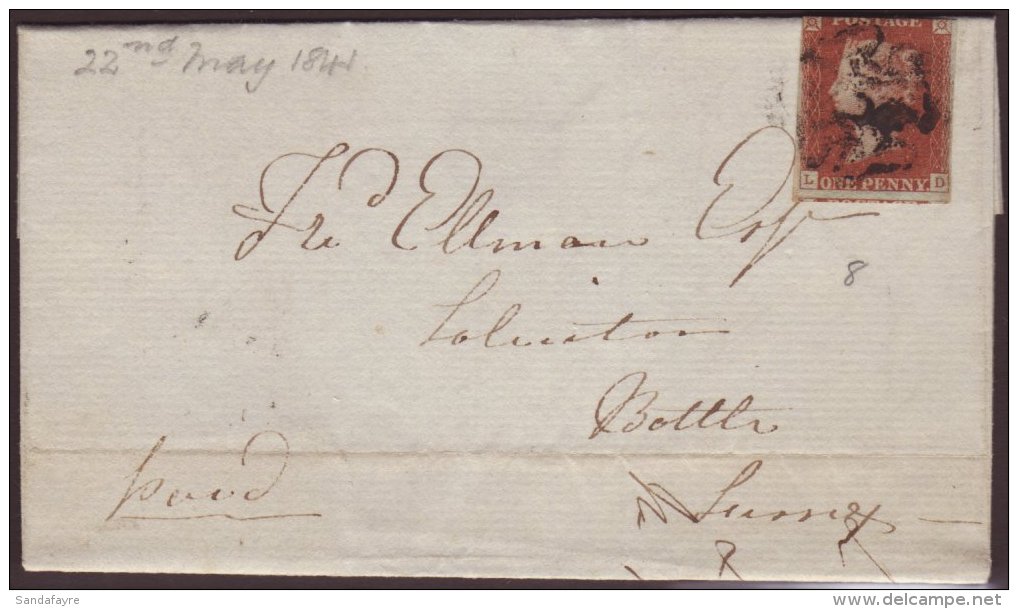 22nd May 1841
POSTAGE
L ONE PENNY. D
Frd Ellman Esqr
Solicitor
Battle
Sussex
paid
8
Sandafayre
delcampe.net